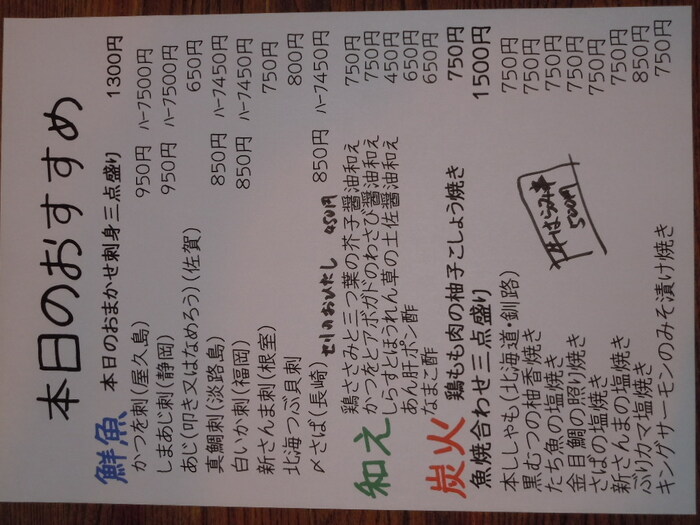 本日のおすすめ
鮮魚
本日のおまかせ刺身三点盛り 1300円
かつを刺(屋久島) 950円 ハーフ500円
しまあじ刺(静岡) 950円 ハーフ500円
あじ(叩き又はなめろう)(佐賀) 650円
真鯛刺(淡路島) 850円 ハーフ450円
白いか刺(福岡) 850円 ハーフ450円
新さんま刺(根室) 750円
北海つぶ貝刺 800円
〆さば(長崎) 850円 ハーフ450円
セリのおひたし 450円
和え
鶏ささみと三つ葉の芥子醤油和え 750円
かつをとアボガドのわさび醤油和え 750円
しらすとほうれん草の土佐醤油和え 450円
あん肝ポン酢 650円
なまこ酢 650円
炭火
鶏もも肉の柚子こしょう焼き 750円
魚焼合わせ三点盛り 1500円
本ししゃも(北海道・釧路) 750円
黒むつの柚香焼き 750円
たち魚の塩焼き 750円
金目鯛の照り焼き 750円
さばの塩焼き 750円
新さんまの塩焼き 750円
ぶりカマ塩焼き 850円
キングサーモンのみそ漬け焼き 750円
はらみ串
500円